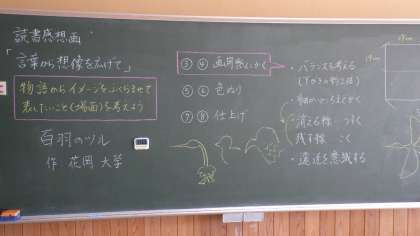 読書感想画
「言葉から想像を広げて」
物語からイメージをふくらませて
表したいこと(場面)を考えよう
百羽のツル
作 花岡 大学
③ ④ 画用紙にかく
⑤ ⑥ 色ぬり
⑦ ⑧ 仕上げ
・バランスを考える
(下がきの約2倍)
・消える線 うすく
残す線 こく
・遠近を意識する